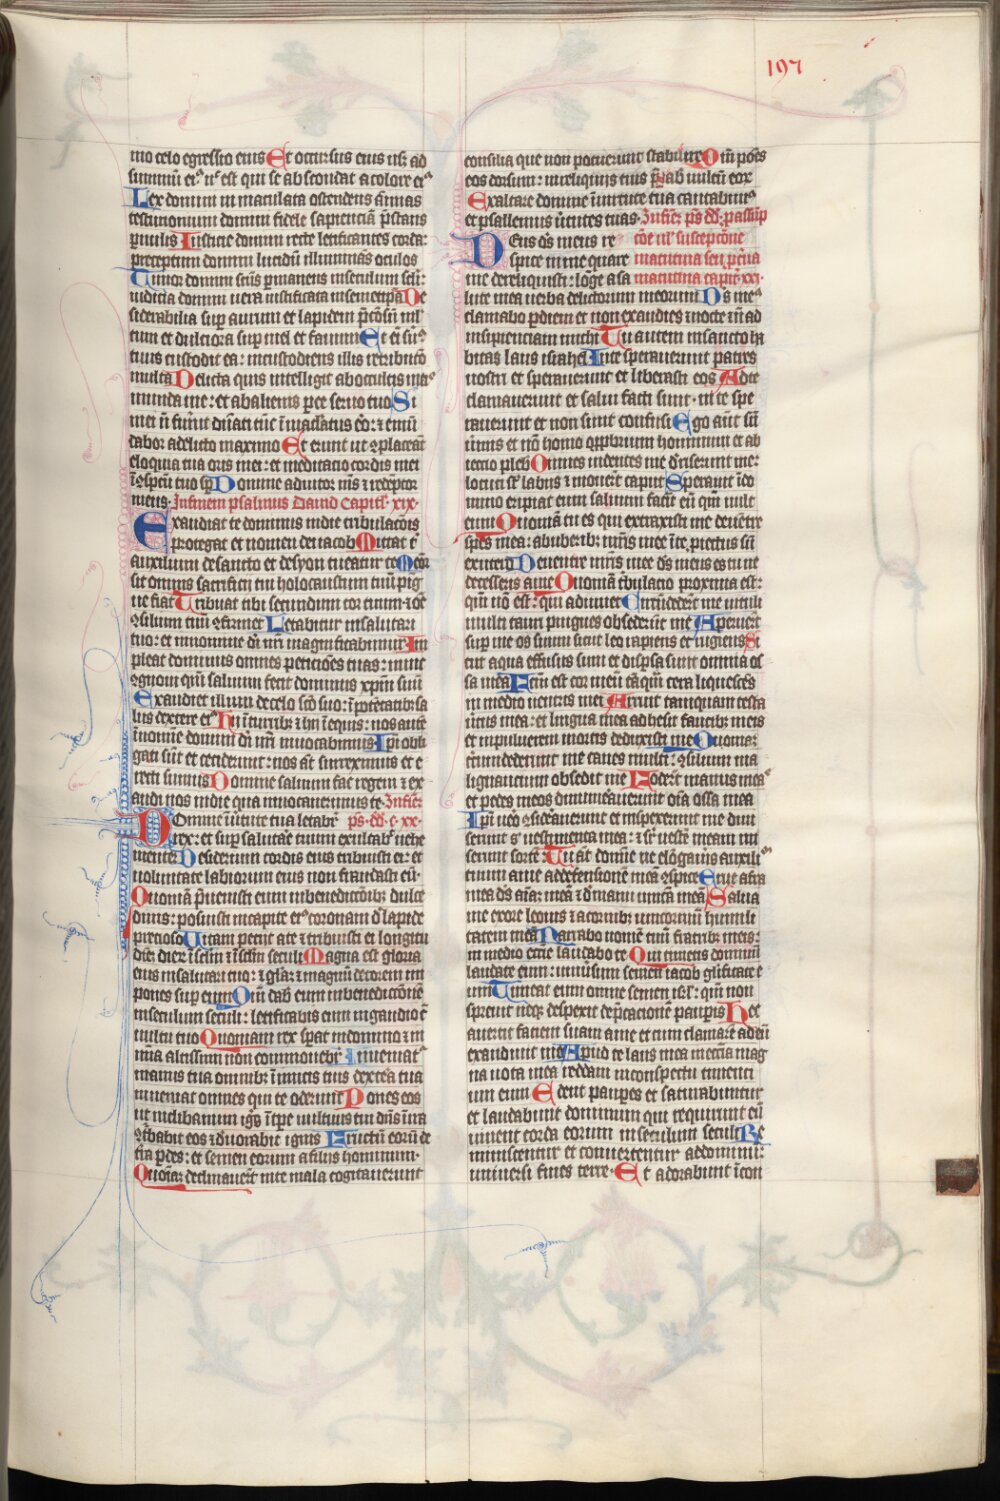 197
mo celo egressio eius Et occursus eius usq; ad
summū eiꝰ nō est qui se abscondat a calore eiꝰ
Lex domini in maculata ostendens aīmas
testimonium domini fidele sapienciā p̄stans
puulis Iusticie domini recte letificantes corda:
preceptum domini lucidū illuminās oculos
Timor domini scūs ꝑmanens in seculum scli:
iudicia domini uera iustificata in semetip̄a De
siderabilia suꝑ aurum et lapidem p̄ciosū ml̄
tum et dulciora suꝑ mel et fauum Et ei suꝰ
tuus custodit ea: in custodiens illis retributō
multa Delicta quis intelligit ab occultis meꝰ
munda me: et ab alienis ꝑce seruo tuo Si
mei nō fuūnt dn̄ati tūc īmaclatus eō: ⁊ emū
dabor a delicto maximo Et erunt ut ꝯplaceāt
eloquia tua oris mei: et meditacio cordis mei
ī ꝯspcū tuo sp̄ Domine adiutor mꝰ ⁊ redeptor
meus. In finem psalmus Dauid Capitl̄. xix.
Exaudiat te dominus in die tribulacōis
protegat te nomen dei iacob Mittat t̄
auxilium de sancto et de syon tueatur te Meōr
sit omnis sacrificii tui holocaustum tuū pīg
ue fiat Tribuat tibi secundum cor tuum ⁊ oē
ꝯsilium tuū ꝯfirmet Letabimur in salutari
tuo: et in nomine dī nrī magnificabimur Im
pleat dominus omnes peticiōes tuas: nunc
ꝯgnoui qm̄ saluum fecit dominus xp̄m suū
Exaudiet illum de celo scō suo: ī potētatib; sa
lus dextere eiꝰ Hii ī currib; ⁊ hii ī equis: nos aūtē
ī nomine domini dī nrī inuocabimus Ipī obli
gati sūt et ceciderunt: nos aūt surreximus et e
recti sumus Domine saluum fac regem ⁊ ex
audi nos in die qua inuocauerimus te. In fiē:
Domine ī uirtute tua letabr̄ ps. dd. c. xx.
rex: et suꝑ salutare tuum exultabr̄ uehe
menter Desiderium cordis eius tribuisti ei: et
uoluntate labiorum eius non fraudasti eū.
Quoniā p̄uenisti eum in benedictōib; dulce
dinis: posuisti in capite eiꝰ coronam d̄ lapide
precioso Uitam peciit a te ⁊ tribuisti ei longitu
dīē: dier; ī sclm̄ ⁊ ī sclm̄ seculi Magna est gloria
eius in salutari tuo: ⁊ glār; ⁊ magnū decorem im
pones suꝑ eum Qm̄ dab̄ eum in benedictiōnē
in seculum seculi: letificabis eum in gaudio c̄
uultu tuo Quoniam rex spat in domino ⁊ in
mīa altissimi non commouebr̄ Inueniatꝰ
manus tua omnib; ī imicis tuis dextera tua
inueniat omnes qui te oderunt Pones eos
ut in clibanum igīs ī tpe uultus tui dn̄s ī ira
ꝯtbabit eos ⁊ d̄uorabit ignis Fructū eorū de
tīra ꝑdes: et semen eorum a filiis hominum.
Quoīa; declinauerūt in te mala cogitauerunt
consilia que non potuerunt stabilire Qm̄ poēs
eos dorsum: in reliquiis tuis p̄ꝑab uultū eor
Exaltare domine ī uirtute tua cantabimꝰ
et psallemus uirtutes tuas. In fiē: ps. dd. p assūp
Deus dꝰ meus re cōe ul̄ susceptōne
spice in me quare matutina seu ꝑcīa
me dereliquisti: lōge a sa matutina capīt. xxi.
lute mea uerba delictorum meorum Dꝰ meꝰ
clamabo ꝑ diem et non exaudies ⁊ nocte ⁊ nō ad
insipienciam michi Tu autem in sancto ha
bitas laus israhel In te sperauerunt patres
nostri et sperauerunt et liberasti eos Ad te
clamauerunt et salui facti sunt. in te spe
rauerunt et non sunt confusi Ego aūt sū
uermis et nō homo opprobrium hominum et ab
iectio pleb̄ Omnes uidentes me d̄riserunt me:
locuti sūt labiis ⁊ mouerūt caput Sperauit ī dō
mino eripiat eum saluum faciat eū qm̄ uult
eum Quoniā tu es qui extraxisti me de uētre
spēs mea: ab uberib; mr̄is mee ī te ꝓiectus sū
ex utero De uentre mr̄is mee dꝰ meus es tu ne
decesseris a me Quoniā tribulatio proxima est:
qm̄ nō est: qui adiuuet Circūdederūt me uituli
multi tauri pingues obsederūt me Aperuerūt
suꝑ me os suum sicut leo rapiens et rugiens Si
cut aqua effusus sum et dispersa sunt omnia os
sa mea Fcm̄ est cor meū tāqm̄ cera liquescēs
in medio uentris mei Aruit tamquam testa
uirtus mea: et lingua mea adhesit faucib; meis
et in puluerem mortis deduxisti me Quonia;
circumdederunt me canes multi: ꝯsilium ma
lignantium obsedit me Foderūt manus meaꝰ
et pedes meos dinumerauerunt oīa ossa mea
Ipī ueō ꝯsiderauerunt et inspexerunt me diui
serunt sꝰ uestimenta mea: ⁊ sr̄ uestē meam mi
serunt sortē: Tu aūt domine ne elōgaueris auxili
tuum a me ad defensionē meā ꝯspice Erue a fra
mea dꝰ aīa; meā ⁊ d̄ manu unicā meā Salua
me ex ore leonis ⁊ a cornib; unicornū humili
tatem meā Narrabo nomē tuū fratrib; meis:
in medio ecclīe laudabo te Qui timetis dominū
laudate eum: uniūsum semen iacob glificate e
um Timeat eum omne semen isrl̄: qm̄ non
spreuit neq; despexit dep̄cacionē pauperis Nec
auertit faciem suam a me et cum clamarē ad eū
exaudiuit me Apud te laus mea ī ecclīa mag
na uota mea reddam in conspectu timenti
um eum Edent pauꝑes et saturabuntur
et laudabunt dominum qui requirunt eū
uiuent corda eorum in seculum seculi Re
miniscentur et conuertentur ad dominū:
uniuersi fines terre. Et adorabunt ī con